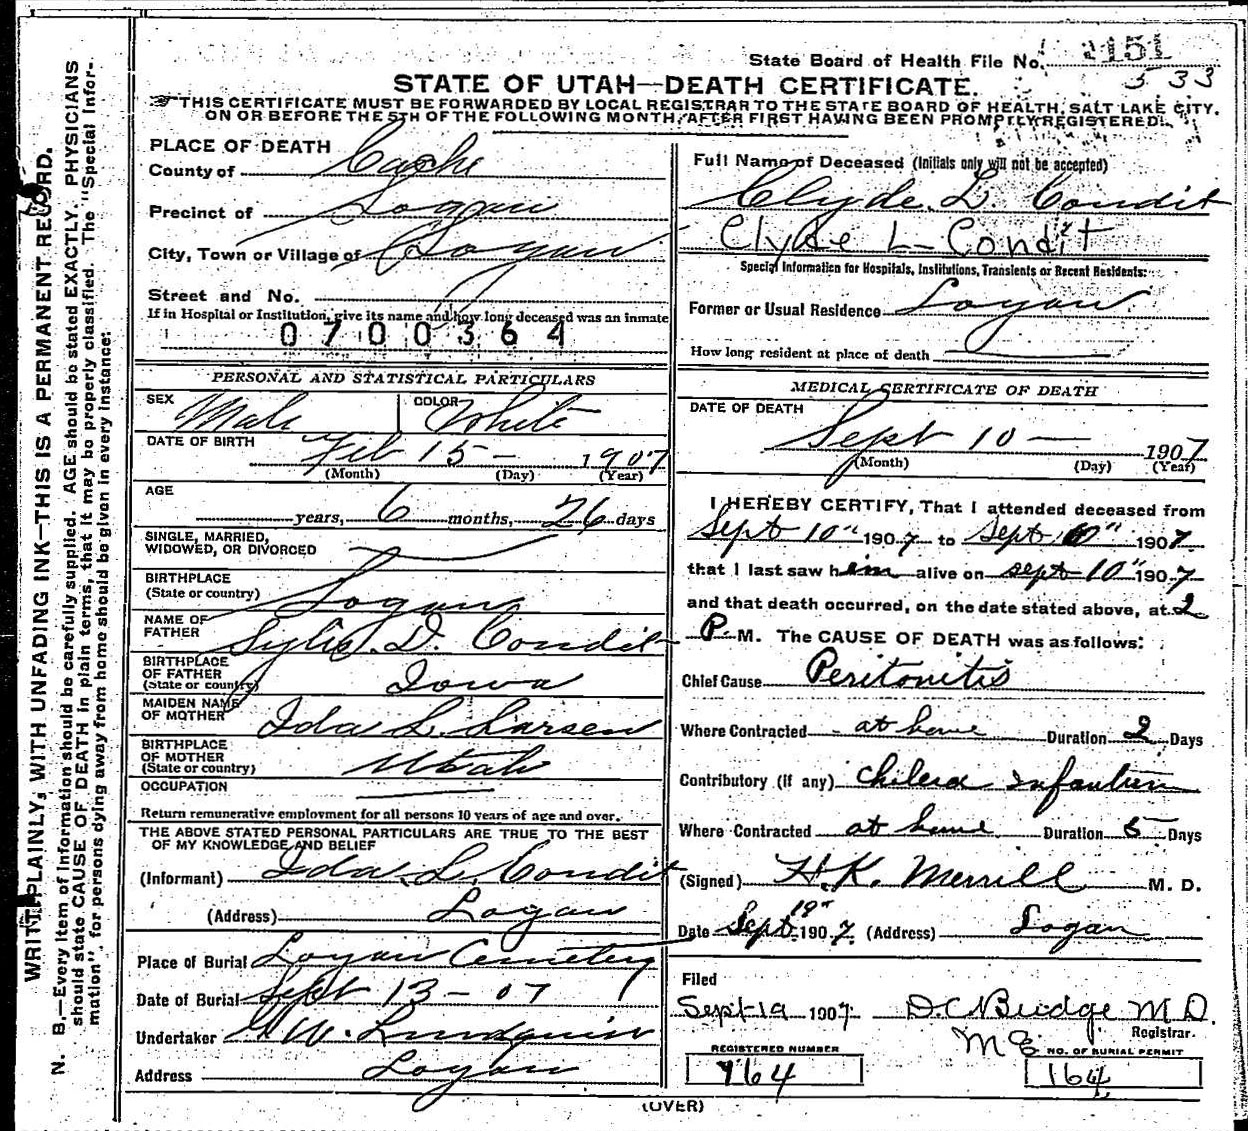 State Board of Health File No. 151
533
STATE OF UTAH—DEATH CERTIFICATE.
THIS CERTIFICATE MUST BE FORWARDED BY LOCAL REGISTRAR TO THE STATE BOARD OF HEALTH, SALT LAKE CITY,
ON OR BEFORE THE 5TH OF THE FOLLOWING MONTH, AFTER FIRST HAVING BEEN PROMPTLY REGISTERED.
WRITE PLAINLY, WITH UNFADING INK—THIS IS A PERMANENT RECORD.
N. B.—Every item of information should be carefully supplied. AGE should be stated EXACTLY. PHYSICIANS
should state CAUSE OF DEATH in plain terms, that it may be properly classified. The "Special Infor-
mation" for persons dying away from home should be given in every instance:
PLACE OF DEATH
County of Cache
Precinct of Logan
City, Town or Village of Logan
Street and No.
If in Hospital or Institution, give its name and how long deceased was an inmate
0700364
PERSONAL AND STATISTICAL PARTICULARS
SEX Male COLOR White
DATE OF BIRTH
Feb 15 - 1907
(Month) (Day) (Year)
AGE
years, 6 months, 26 days
SINGLE, MARRIED,
WIDOWED, OR DIVORCED
BIRTHPLACE
(State or country) Logan
NAME OF
FATHER D. Condit
BIRTHPLACE
OF FATHER
(State or country) Iowa
MAIDEN NAME
OF MOTHER Ida L. Larsen
BIRTHPLACE
OF MOTHER
(State or country) Utah
OCCUPATION
Return remunerative employment for all persons 10 years of age and over.
THE ABOVE STATED PERSONAL PARTICULARS ARE TRUE TO THE BEST
OF MY KNOWLEDGE AND BELIEF
(Informant) Ida L. Condit
(Address) Logan
Place of Burial Logan Cemetery
Date of Burial Sept 13 - 07
Undertaker W. Lundquist
Address Logan
Full Name of Deceased (Initials only will not be accepted)
Clyde L. Condit
Clyde L Condit
Special Information for Hospitals, Institutions, Transients or Recent Residents:
Former or Usual Residence Logan
How long resident at place of death
MEDICAL CERTIFICATE OF DEATH
DATE OF DEATH
Sept 10 — 1907
(Month) (Day) (Year)
I HEREBY CERTIFY, That I attended deceased from
Sept 10" 1907 to Sept 10" 1907
that I last saw him alive on Sept 10" 1907
and that death occurred, on the date stated above, at 2
P. M. The CAUSE OF DEATH was as follows:
Chief Cause Peritonitis
Where Contracted at home Duration 2 Days
Contributory (if any) Cholera Infantum
Where Contracted at home Duration 5 Days
(Signed) H. K. Merrill M. D.
Date Sept 19" 1907. (Address) Logan
Filed
Sept 19 1907 D.C. Budge M.D.
Registrar.
REGISTERED NUMBER
764
NO. OF BURIAL PERMIT
164
(OVER)